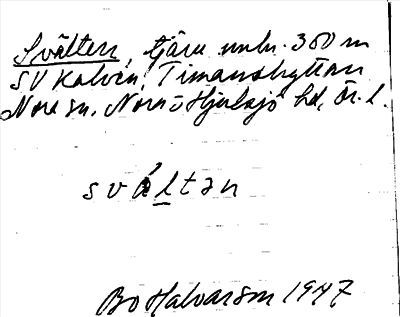 Svälten, tjärn 300 m
SV Kalven, Timanshyttan
Nora sn. Nora o Hjulsjö hd, Ör. l.
sváltən
Bo Halvarson 1947